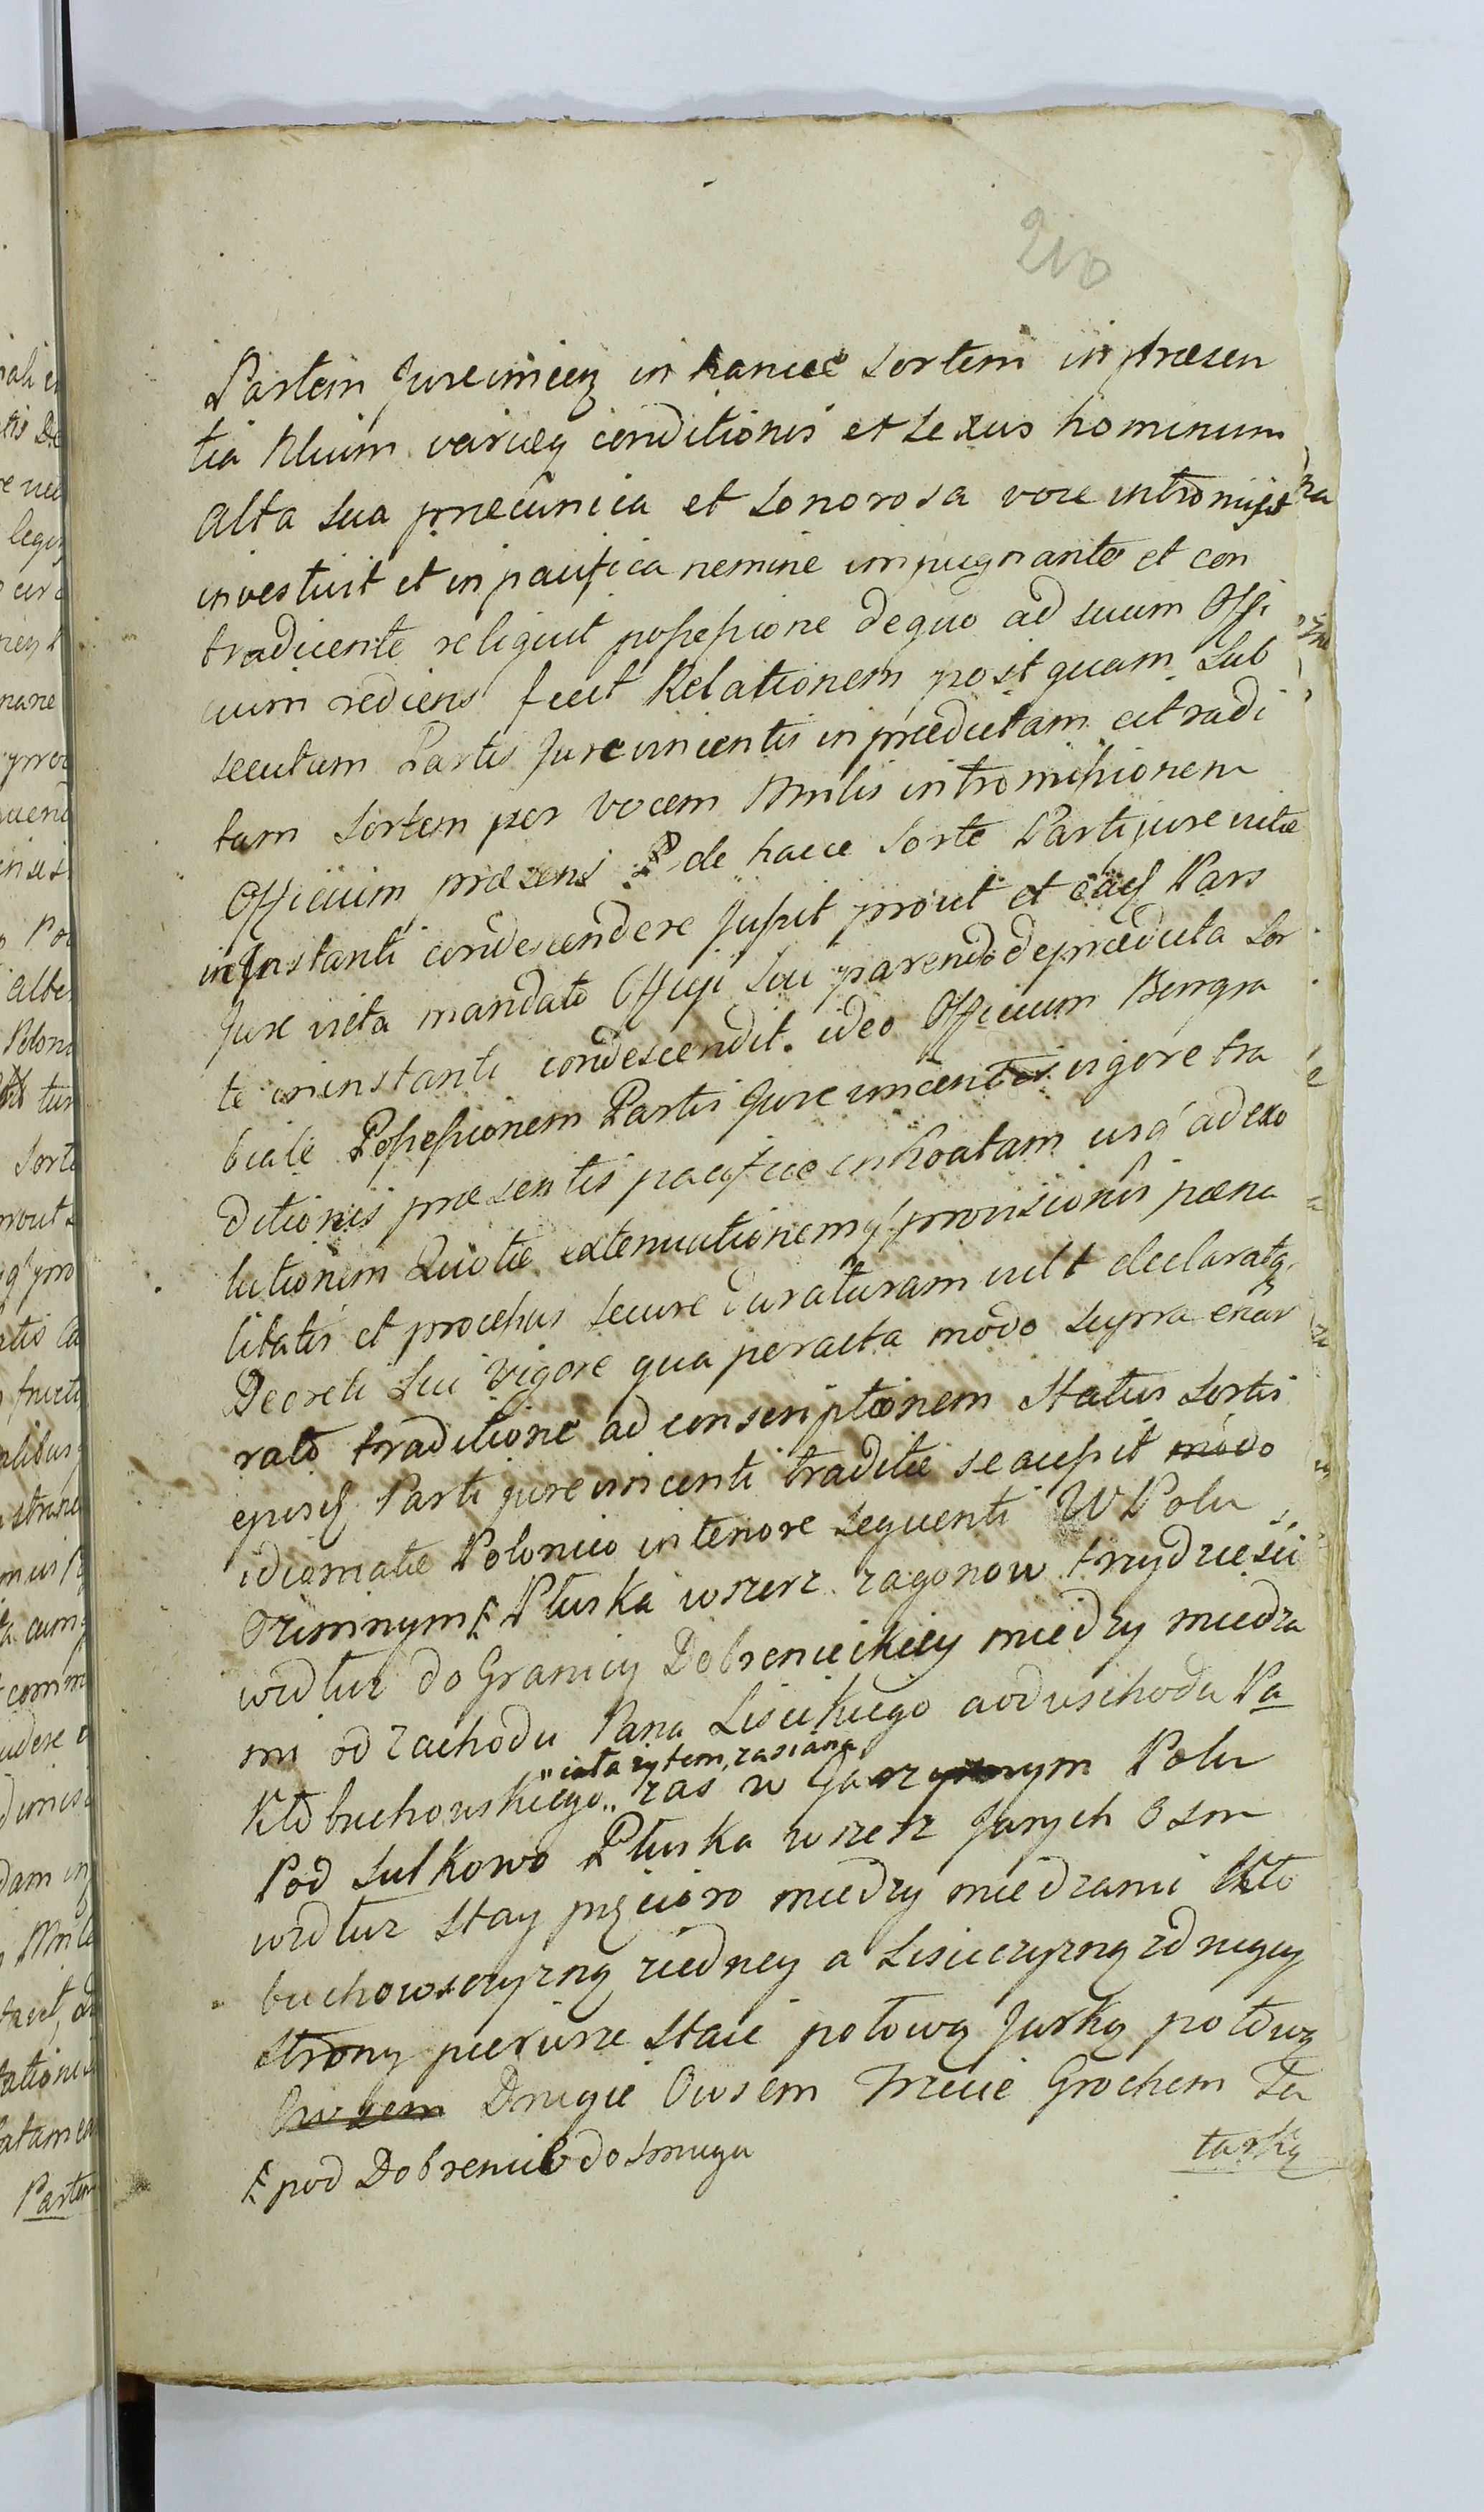 210
Partem Jurevincen in hance Sortem in praesen
tia Plium variaeq conditionis et Sexus hominum
alta sua praeconica et Sonorosa voce intromisit
investivit et in pacifica nemine impugnante et con
tradicente reliquit possessione de quo ad suum Offi
cium rediens fecit Relationem post quam Sub
secutam Partis Jurevincentis in praedictam et tradi
tam Sortem per vocem Mnlis intromissionem
Officium praesens de hacce Sorte Parti jure victae
in Instanti condescendere Jussit prout et eadq Pars
Jure victa mandato Officji Sui parendo de praedicta Sor
te in instanti condescendit. ideo Officium Burgra
biale Possessionem Partis Jure vincentis vigore tra
ditionis praesentis pacificae inchoatam usq ad exo
lutionem Quotae extenuationemq provisionis paena
litatis et processus secure duraturam vult declaratq
Decreti sui vigore qua peracta modo supra enar
rato traditione ad conscriptionem Status Sortis
ejusq Parti jurevincenti traditae se accessit modo
idiomate Polonico in tenore sequenti W Polu
Oziminym Płuska wszerz zagonow trzydzieści
wzdłuz do Granicy Dobrenieckiey miedzy miedza
mi od zachodu Pana Lisickiego a od wschodu Pa
"cała zytem zasiana
Kłobuchowskiego,, zas w Jarzynnym Polu
Pod Sulkowo Płuska wszerz Jarych Osm
wzdłuz Stay pięcioro miedzy miedzami Kło
buchowszczyzną ziedney a Lisiczyzną zdrugiey
Strony pierwsze Staie połową Jarką połową
Owsem Drugie Owsem Trzecie Grochem Ta
tarką
pod Dobrenice do Smugu